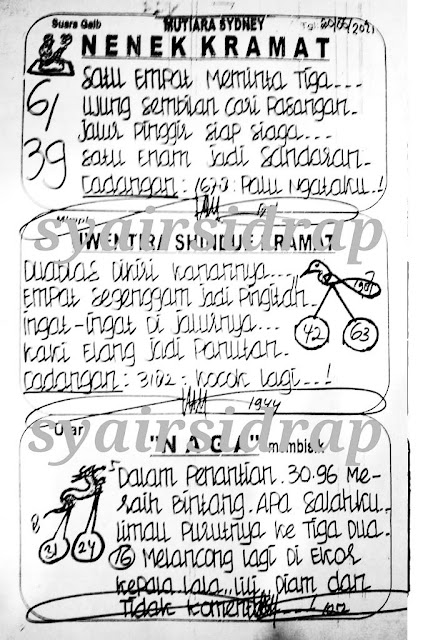 Suara Gaib
MUTIARA SYDNEY
NENEK KRAMAT
6/
39
Satu Empat Meminta Tiga..
Ujung Sembilan Cari Pasangan..
Jalur Pinggir Siap Siaga...
Satu Enam Jadi Sandaran..
Cadangan : 1673 : Palu Ngataku..!
syairsidrap
KRAMAT
Duadua Dikiri Kanannya...
Empat Segenggam Jadi Pingitan..
Ingat-Ingat Di Jalurnya...
Kaki Elang Jadi Panutan..
Cadangan : 3182 : Kocok Lagi...!
42
63
1944
syairsidrap
"NAGA" membisik
Dalam Penantian. 30.96 Me-
raih Bintang. Apa Salahku..
Limau Purutnya Ke Tiga Dua.
16 Melancong Lagi Di Ekor
Kepala. Lala.. Lili.. Diam dan
Tidak Koment
21
24